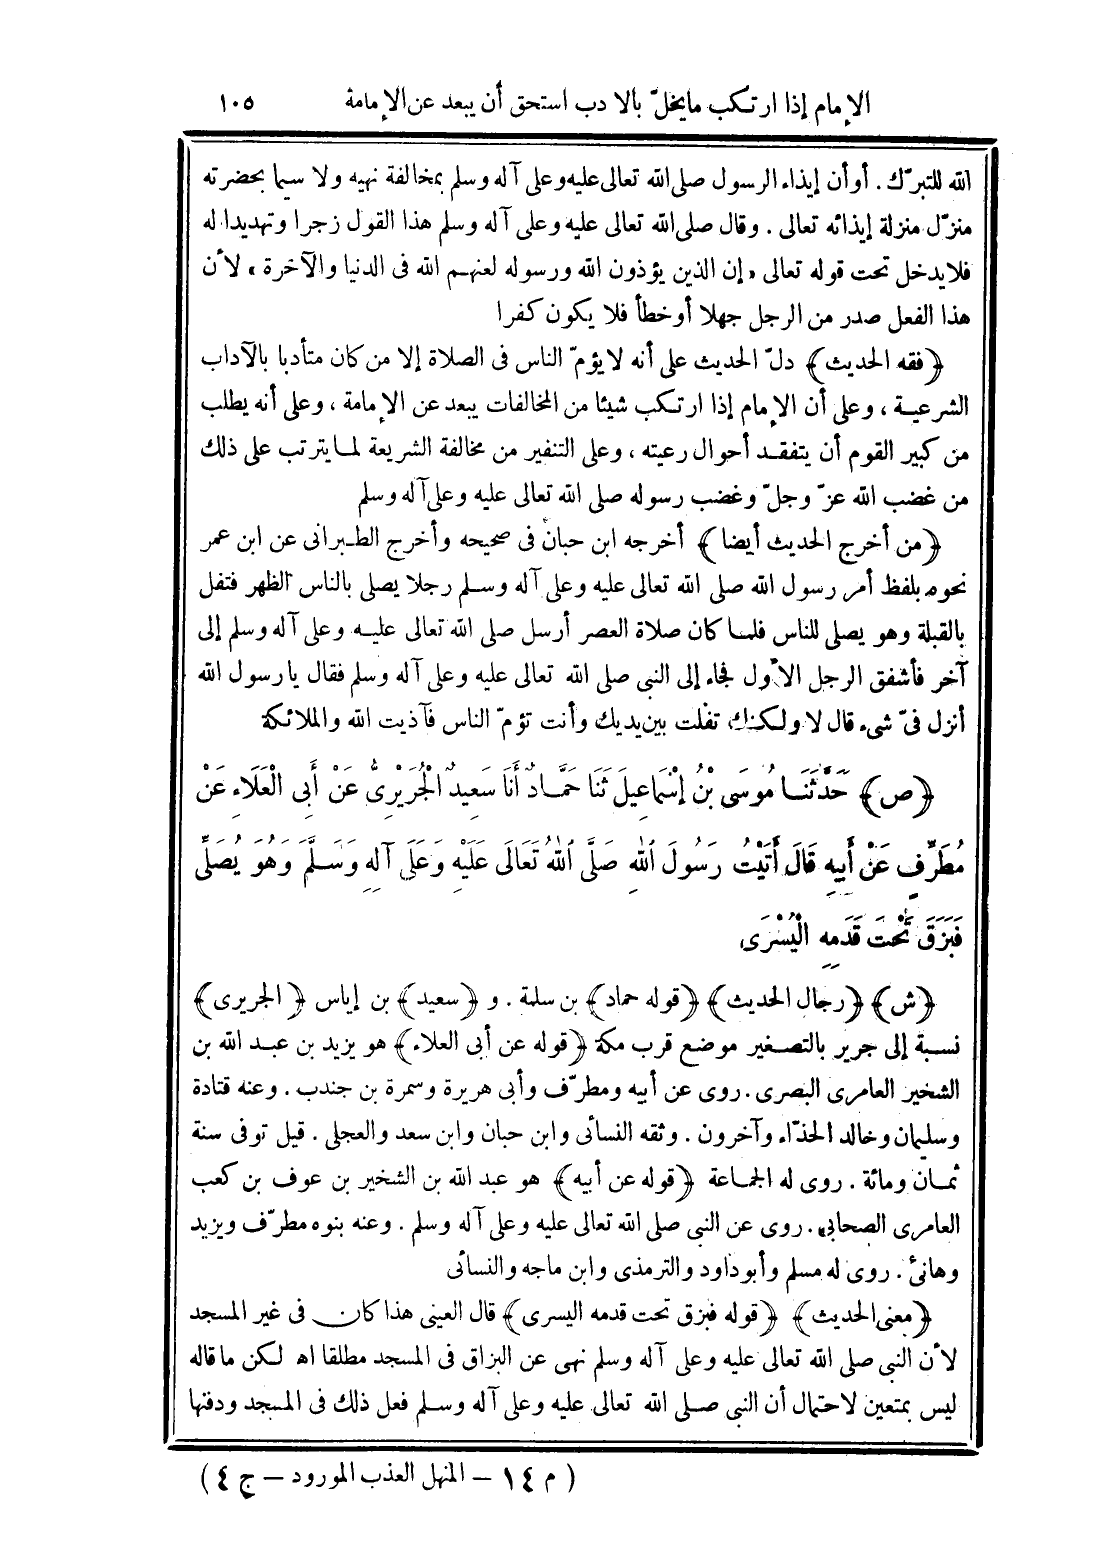 الإمام إذا ارتكب مايخلّ بالادب استحق أن يبعد عن الإمامة ١٠٥
الله للتبرّك . أوأن إيذاء الرسول صلى الله تعالى عليه وعلى آله وسلم بمخالفة نهيه ولا سيما بحضرته
منزّل منزلة إيذائه تعالى . وقال صلى الله تعالى عليه وعلى آله وسلم هذا القول زجرا وتهديدا له
فلا يدخل تحت قوله تعالى « إن الذين يؤذون الله ورسوله لعنهم الله فى الدنيا والآخرة » لأن
هذا الفعل صدر من الرجل جهلا أو خطأ فلا يكون كفرا
﴿فقه الحديث﴾ دلّ الحديث على أنه لا يؤمّ الناس فى الصلاة إلا من كان متأدبا بالآداب
الشرعية ، وعلى أن الإمام إذا ارتكب شيئا من المخالفات يبعد عن الإمامة ، وعلى أنه يطلب
من كبير القوم أن يتفقد أحوال رعيته ، وعلى التنفير من مخالفة الشريعة لما يترتب على ذلك
من غضب الله عزّ وجلّ وغضب رسوله صلى الله تعالى عليه وعلى آله وسلم
﴿من أخرج الحديث أيضا﴾ أخرجه ابن حبان فى صحيحه وأخرج الطبرانى عن ابن عمر
نحوه بلفظ أمر رسول الله صلى الله تعالى عليه وعلى آله وسلم رجلا يصلى بالناس الظهر فتفل
بالقبلة وهو يصلى للناس فلما كان صلاة العصر أرسل صلى الله تعالى عليه وعلى آله وسلم إلى
آخر فأشفق الرجل الأول فجاء إلى النبى صلى الله تعالى عليه وعلى آله وسلم فقال يا رسول الله
أنزل فىّ شىء قال لا ولكنك تفلت بين يديك وأنت تؤمّ الناس فآذيت الله والملائكة
﴿ص﴾ حَدَّثَنَا مُوسَى بْنُ إِسْمَاعِيلَ ثَنَا حَمَّادٌ أَنَا سَعِيدٌ الْجُرَيْرِىُّ عَنْ أَبِى الْعَلَاءِ عَنْ
مُطَرِّفٍ عَنْ أَبِيهِ قَالَ أَتَيْتُ رَسُولَ اللهِ صَلَّى اللهُ تَعَالَى عَلَيْهِ وَعَلَى آلِهِ وَسَلَّمَ وَهُوَ يُصَلِّى
فَبَزَقَ تَحْتَ قَدَمِهِ الْيُسْرَى
﴿ش﴾ ﴿رجال الحديث﴾ ﴿قوله حماد﴾ بن سلمة . و ﴿سعيد﴾ بن إياس ﴿الجريرى﴾
نسبة إلى جرير بالتصغير موضع قرب مكة ﴿قوله عن أبى العلاء﴾ هو يزيد بن عبد الله بن
الشخير العامرى البصرى . روى عن أبيه ومطرّف وأبى هريرة وسمرة بن جندب . وعنه قتادة
وسليمان وخالد الحذّاء وآخرون . وثقه النسائى وابن حبان وابن سعد والعجلى . قيل توفى سنة
ثمان ومائة . روى له الجماعة ﴿قوله عن أبيه﴾ هو عبد الله بن الشخير بن عوف بن كعب
العامرى الصحابى . روى عن النبى صلى الله تعالى عليه وعلى آله وسلم . وعنه بنوه مطرّف ويزيد
وهانئ . روى له مسلم وأبو داود والترمذى وابن ماجه والنسائى
﴿معنى الحديث﴾ ﴿قوله فبزق تحت قدمه اليسرى﴾ قال العينى هذا كان فى غير المسجد
لأن النبى صلى الله تعالى عليه وعلى آله وسلم نهى عن البزاق فى المسجد مطلقا اه لكن ما قاله
ليس بمتعين لاحتمال أن النبى صلى الله تعالى عليه وعلى آله وسلم فعل ذلك فى المسجد ودفنها
( م ١٤ – المنهل العذب المورود – ج ٤ )